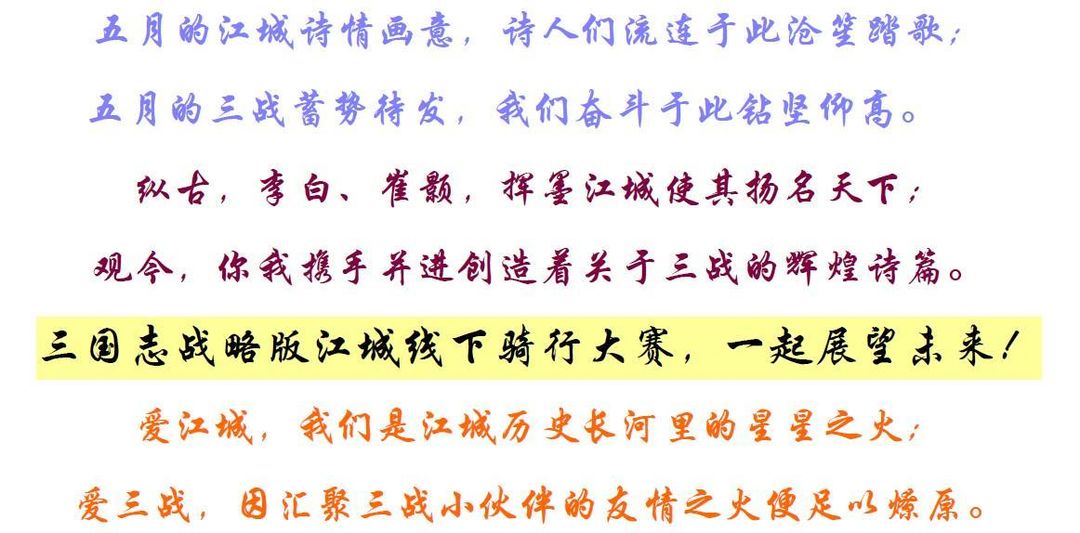 五月的江城诗情画意，诗人们流连于此沧笙踏歌；
五月的三战蓄势待发，我们奋斗于此钻坚仰高。
纵古，李白、崔颢，挥墨江城使其扬名天下；
观今，你我携手并进创造着关于三战的辉煌诗篇。
三国志战略版江城线下骑行大赛，一起展望未来！
爱江城，我们是江城历史长河里的星星之火；
爱三战，因汇聚三战小伙伴的友情之火便足以燎原。